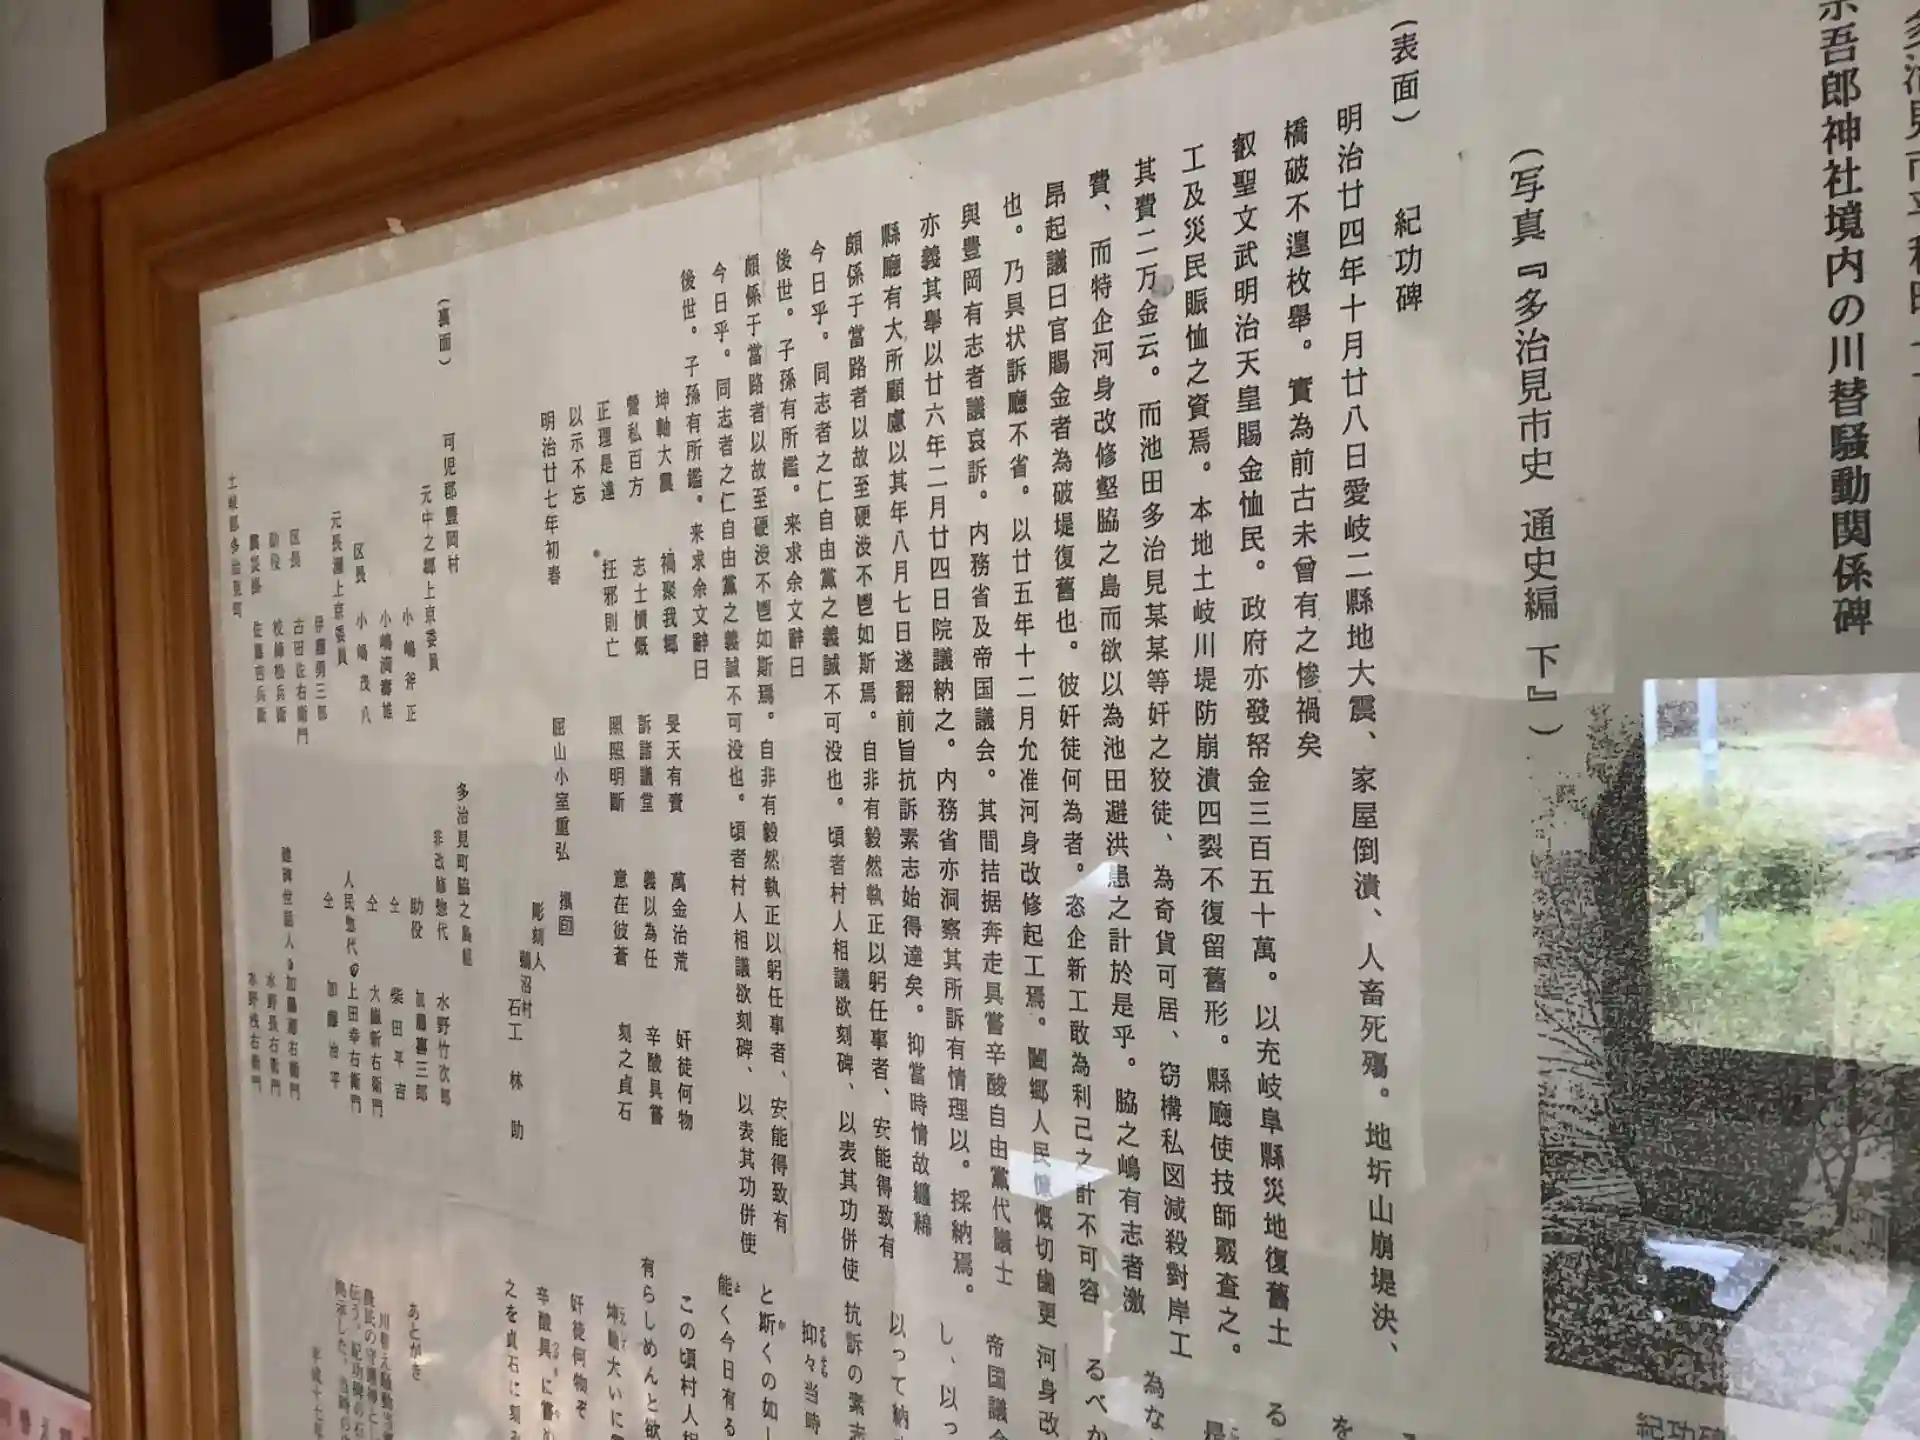 吾郎神社境内の川替騒動関係碑
(写真『多治見市史 通史編 下』)
(表面) 紀功碑
明治廿四年十月廿八日愛岐二縣地大震、家屋倒潰、人畜死殤。地圻山崩堤決、
橋破不遑枚舉。實為前古未曾有之慘禍矣
叡聖文武明治天皇賜金恤民。政府亦發帑金三百五十萬。以充岐阜縣災地復舊土
工及災民賑恤之資焉。本地土岐川堤防崩潰四裂不復留舊形。縣廳使技師覈查之。
其費二万金云。而池田多治見某某等奸之狡徒、為奇貨可居、窃構私図減殺對岸工
費、而特企河身改修壑脇之島而欲以為池田避洪患之計於是乎。脇之嶋有志者激
昂起議曰官賜金者為破堤復舊也。彼奸徒何為者。恣企新工敢為利己之計不可容
也。乃具状訴廳不省。以廿五年十二月允准河身改修起工焉。闔郷人民慷慨切齒更
與豊岡有志者議哀訴。内務省及帝国議会。其間拮据奔走具嘗辛酸自由黨代議士
亦義其舉以廿六年二月廿四日院議納之。内務省亦洞察其所訴有情理以。採納焉。
縣廳有大所顧慮以其年八月七日遂翻前旨抗訴素志始得達矣。抑當時情故纏綿
頗係于當路者以故至硬澁不鬯如斯焉。自非有毅然執正以躬任事者、安能得致有
今日乎。同志者之仁自由黨之義誠不可没也。頃者村人相議欲刻碑、以表其功併使
後世。子孫有所鑑。来求余文辭曰
頗係于當路者以故至硬澁不鬯如斯焉。自非有毅然執正以躬任事者、安能得致有
今日乎。同志者之仁自由黨之義誠不可没也。頃者村人相議欲刻碑、以表其功併使
後世。子孫有所鑑。来求余文辭曰
坤軸大震 禍聚我郷 旻天有賚 萬金治荒 奸徒何物
營私百方 志士憤慨 訴諸議堂 義以為任 辛酸具嘗
正理是達 抂邪則亡 照照明斷 意在彼蒼 刻之貞石
以示不忘
明治廿七年初春 屈山小室重弘 撰囬
彫刻人 鵜沼村 石工 林 助
(裏面)
可児郡豊岡村
元中之郷上京委員
小嶋斧正
小嶋満壽雄
区長 小嶋茂八
元長瀬上京委員
伊藤勇三郎
区長 古田佐右衛門
助役 校條松兵衛
震災掛 佐藤吉兵衛
土岐郡多治見町
多治見町脇之島組
非改修惣代 水野竹次郎
助役 加藤喜三郎
仝 柴田平吉
仝 大嶽新右衛門
人民惣代 上田幸右衛門
仝 加藤治平
建碑世話人
水野長右衛門
為な
るべか
河身改
帝国議会
し、以っ
以って納
抗訴の素志
抑々当時
と斯くの如
能く今日有る
この頃村人相
有らしめんと欲
坤軸大いに
奸徒何物ぞ
辛酸具に嘗
之を貞石に刻
あとがき
紀功碑